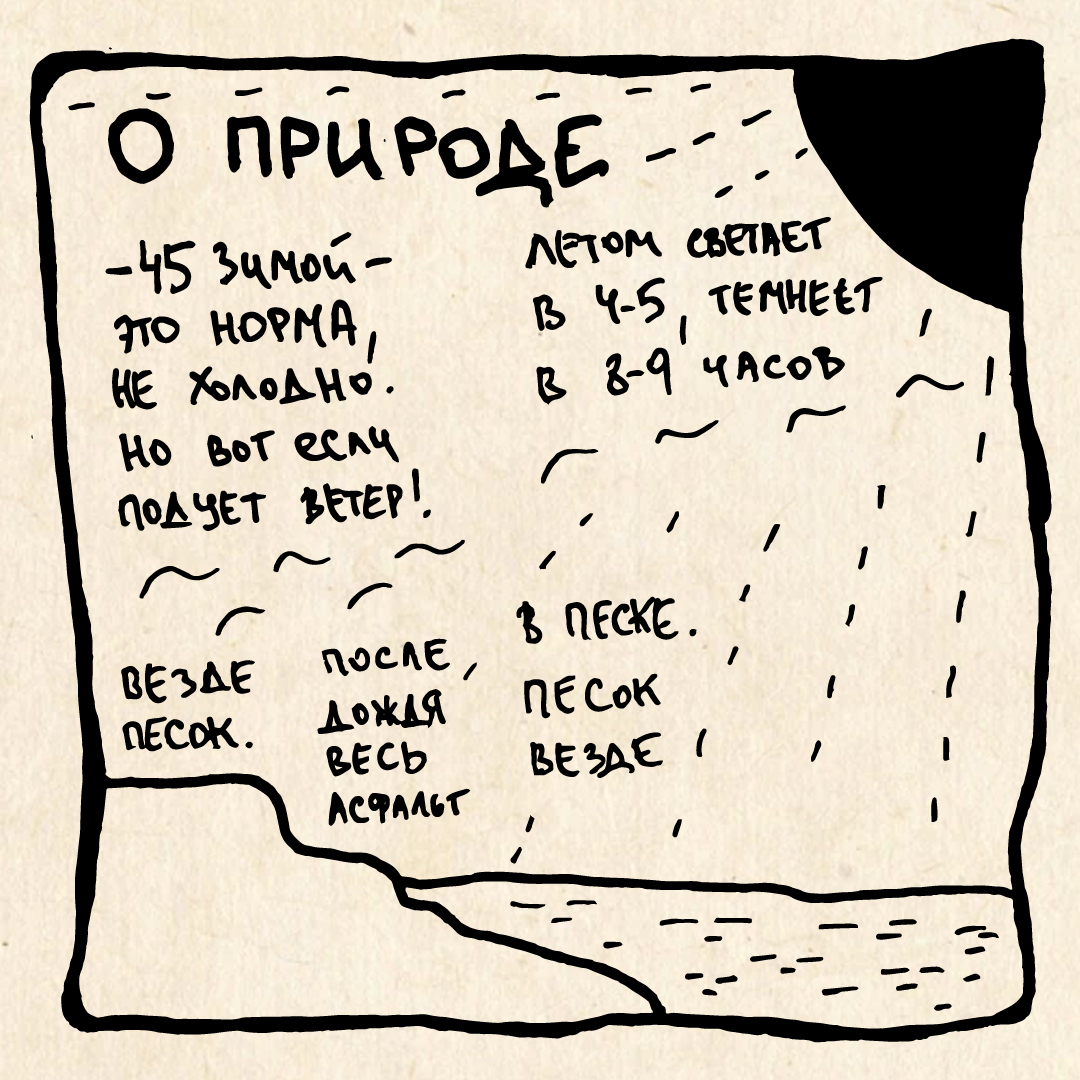 О ПРИРОДЕ
-45 ЗИМОЙ-
ЭТО НОРМА,
НЕ ХОЛОДНО.
НО ВОТ ЕСЛИ
ПОДУЕТ ВЕТЕР!
ЛЕТОМ СВЕТАЕТ
В 4-5, ТЕМНЕЕТ
В 8-9 ЧАСОВ
ВЕЗДЕ
ПЕСОК.
ПОСЛЕ
ДОЖДЯ
ВЕСЬ
АСФАЛЬТ
В ПЕСКЕ.
ПЕСОК
ВЕЗДЕ